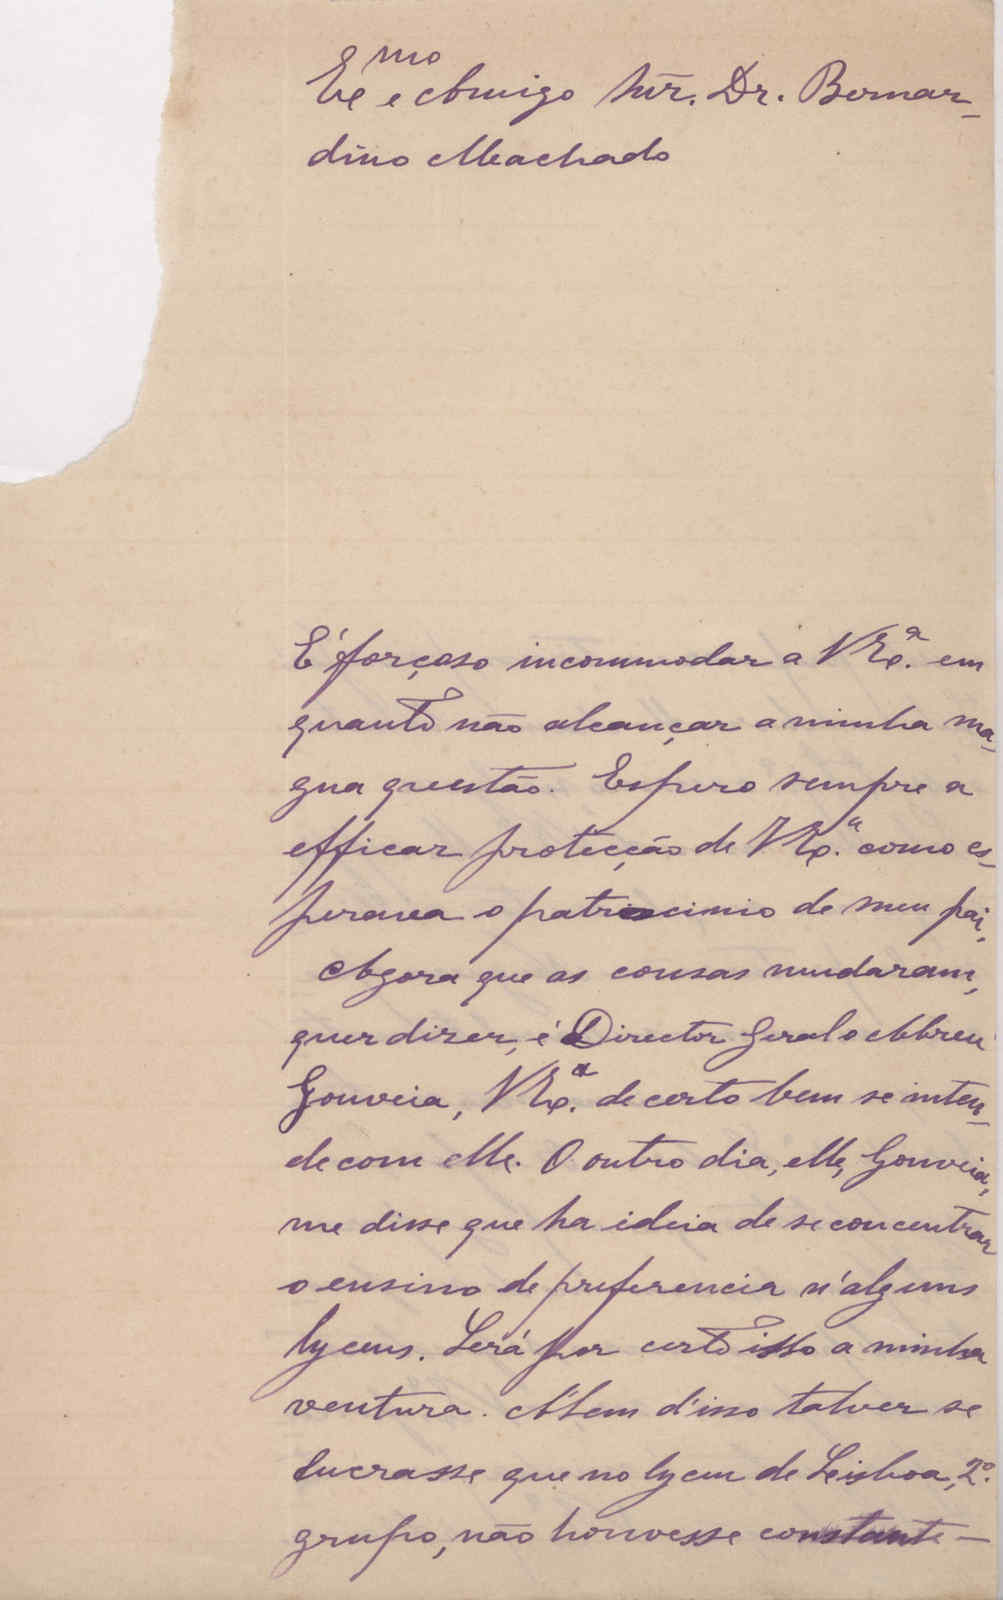 Exmo e Amigo Snr. Dr. Bernar-
dino Machado
É forçoso incommodar a V Exª. em
quanto não alcançar a minha ma-
gna questão. Espero sempre a
efficaz protecção de V Exª. como es-
perava o patrocinio de meu pai,
Agora que as cousas mudaram,
quer dizer, é Director Geral o Abreu
Gouveia, V Exª. de certo bem se inten-
de com elle. O outro dia, elle, Gouveia,
me disse que ha ideia de se concentrar
o ensino de preferencia n'alguns
lyceus. Será por certo isso a minha
ventura. Alem d'isso talvez se
lucrasse que no lyceu de Lisboa, 2º.
grupo, não houvesse constante-